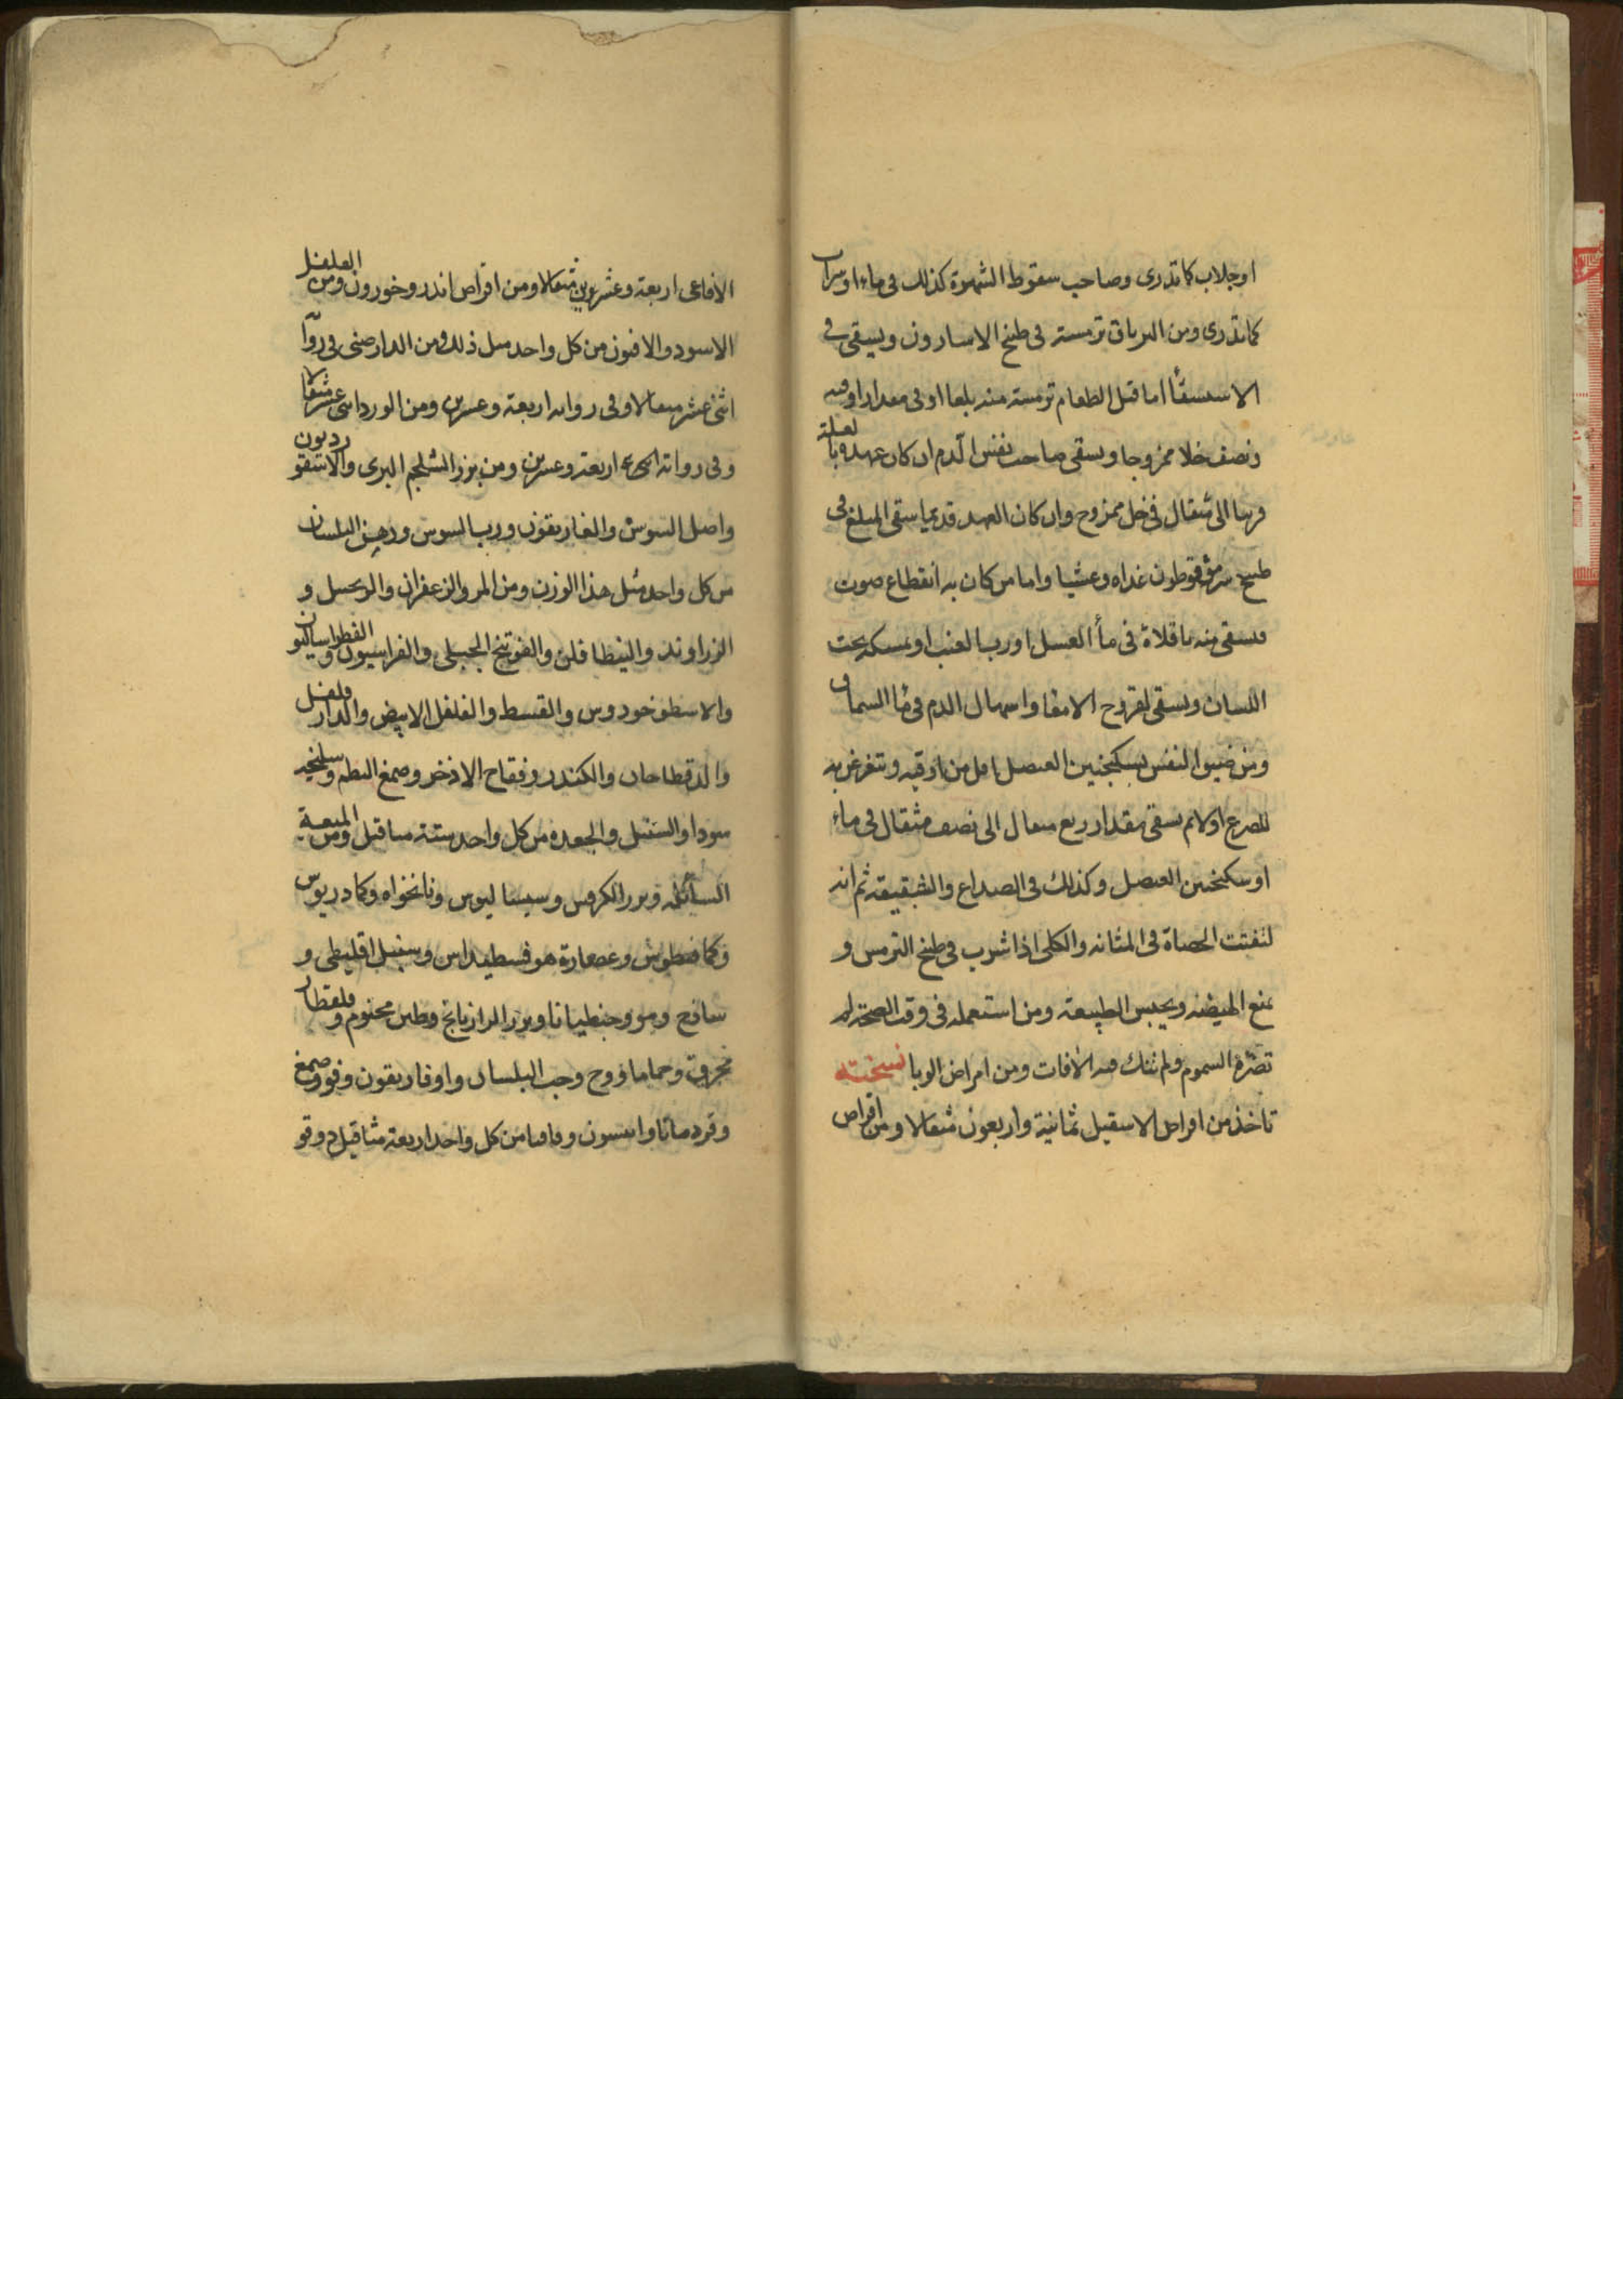 او جلاب كما تدرى وصاحب سقوط الشهوة كذلك فى ماء او شراب
كما تدرى ومن الترياق ترمسة فى طبخ الاسارون ويسقى فى
الاستسقأ اما قبل الطعام ترمسة منه بلعا او فى مقدار اوقيه
ونصف خلا ممزوجا ويسقى صاحب نفس الدم ان كان عهده با لعلة
قريبا الى مثقال فى خل ممزوج وان كان العهد قديما سقى المبلغ فى
طبيخ سومقوطون غداه وعشيا واما من كان به انقطاع صوت
فيسقى منه باقلاة فى مأ العسل او رب العنب او يمسكه تحت
اللسان ويسقى لقروح الامعا واسهال الدم فى مأ السماق
ومن ضيق النفس بسكنجبين العنصل اقل من اوقيه ويتغرغر به
للصرع اولا ثم يسقى مقدار ربع مثقال الى نصف مثقال فى ماء
او سكنجبين العنصل وكذلك فى الصداع والشقيقه ثم انه
لتفتت الحصاة فى المثانه والكلى اذا شرب فى طبخ الترمس و
يمنع الهيضه ويحبس الطبيعة ومن استعمله فى وقت الصحة لم
تضره السموم ولم تنك فيه الافات ومن امراض الوبا نسخته
تاخذ من اقراص الاسقيل ثمانية واربعون مثقالا ومن اقراص
الافاعى اربعة وعشرين مثقالا ومن اقراص اندروخورون ومن الفلفل
الاسود والافيون من كل واحد مثل ذلك ومن الدارصنى فى روآ
اثنى عشر مثقالا وفى رواية اربعة وعشرين ومن الورد اثنى عشر مثقالا
وفى رواته اربعة وعشرين ومن بزر الشلجم البرى والاسقورديون
واصل السوس والغاريقون ورب السوس ودهن البلسان
من كل واحد مثل هذا الوزن ومن المر والزعفران والزنجبيل و
الزراوند والفنطافلن والفوتنج الجبلى والفراسيون والفطراساليون
والاسطوخودوس والقسط والفلفل الابيض والدارفلفل
والدقطاحان والكندر وفقاح الاذخر وصمغ البطم وسليخه
سودا والسنبل والجعده من كل واحد ستة مثاقيل ومن الميعة
السائله وبزر الكرفس وسيساليوس ونانخواه وكادريوس
وكمافيطوس وعصارة هوفسطيداس وسنبل اقليطى و
ساذج ومو وجنطيانا وبزر الرازيانج وطين مختوم وقلقطار
محرق وحماما ووج وحب البلسان واوفاريقون وفو وصمغ
وقردمانا وانيسون وقاقيا من كل واحد اربعة مثاقيل دوقو